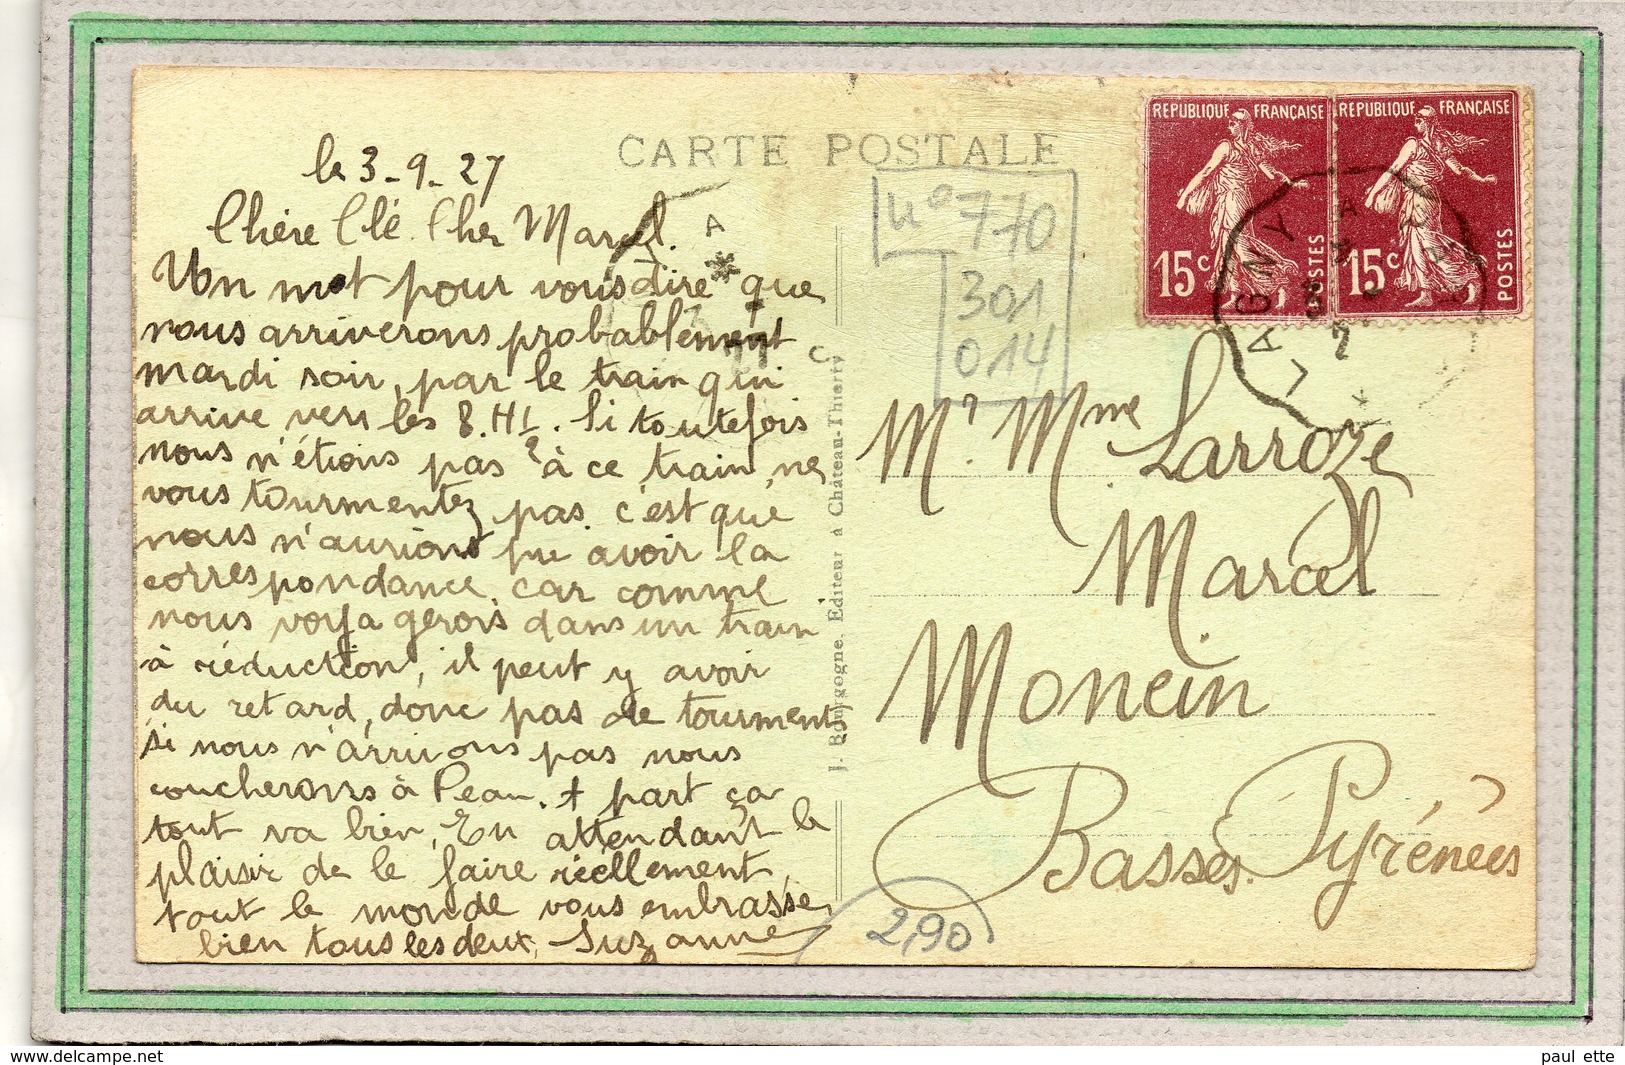 CARTE POSTALE
le 3-9-27
Chère Clé. Cher Marcel.
Un mot pour vous dire que
nous arriverons probablement
mardi soir, par le train qui
arrive vers les 8.H
Si toutefois
nous n'étions pas à ce train, ne
vous tourmentez pas. c'est que
nous n'aurions pu avoir la
correspondance. car comme
nous voyagerons dans un train
à réduction, il peut y avoir
du retard, donc pas de tourments
si nous n'arrivons pas nous
coucherons à Peau. + part ça
tout va bien, En attendant le
plaisir de le faire réellement
tout le monde vous embrasse
bien tous les deux, Suzanne
J. Bourgogne, Editeur à Château-Thierry
n° 770
301
014
REPUBLIQUE FRANÇAISE
15c
POSTES
REPUBLIQUE FRANÇAISE
15c
POSTES
LAGNY
Mr. Mme Larroze
Marcel
Monein
Basses. Pyrénées
2,90
paul ette